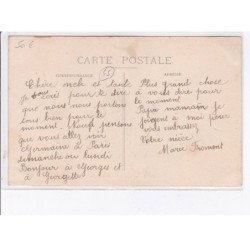 20 €
CARTE POSTALE
CORRESPONDANCE
ADRESSE
Chère oncle et tante
Je vous écris pour te dire
que nous nous portons
tous bien pour le
moment. Nous pensons
que vous allez voir
Germaine à Paris
dimanche ou lundi
Bonjour à Georges et
à Georgette
Plus grand chose
à vous dire pour
le moment
Papa maman se
joignent à moi pour
vous embrasser
Votre nièce
Marie Fromont